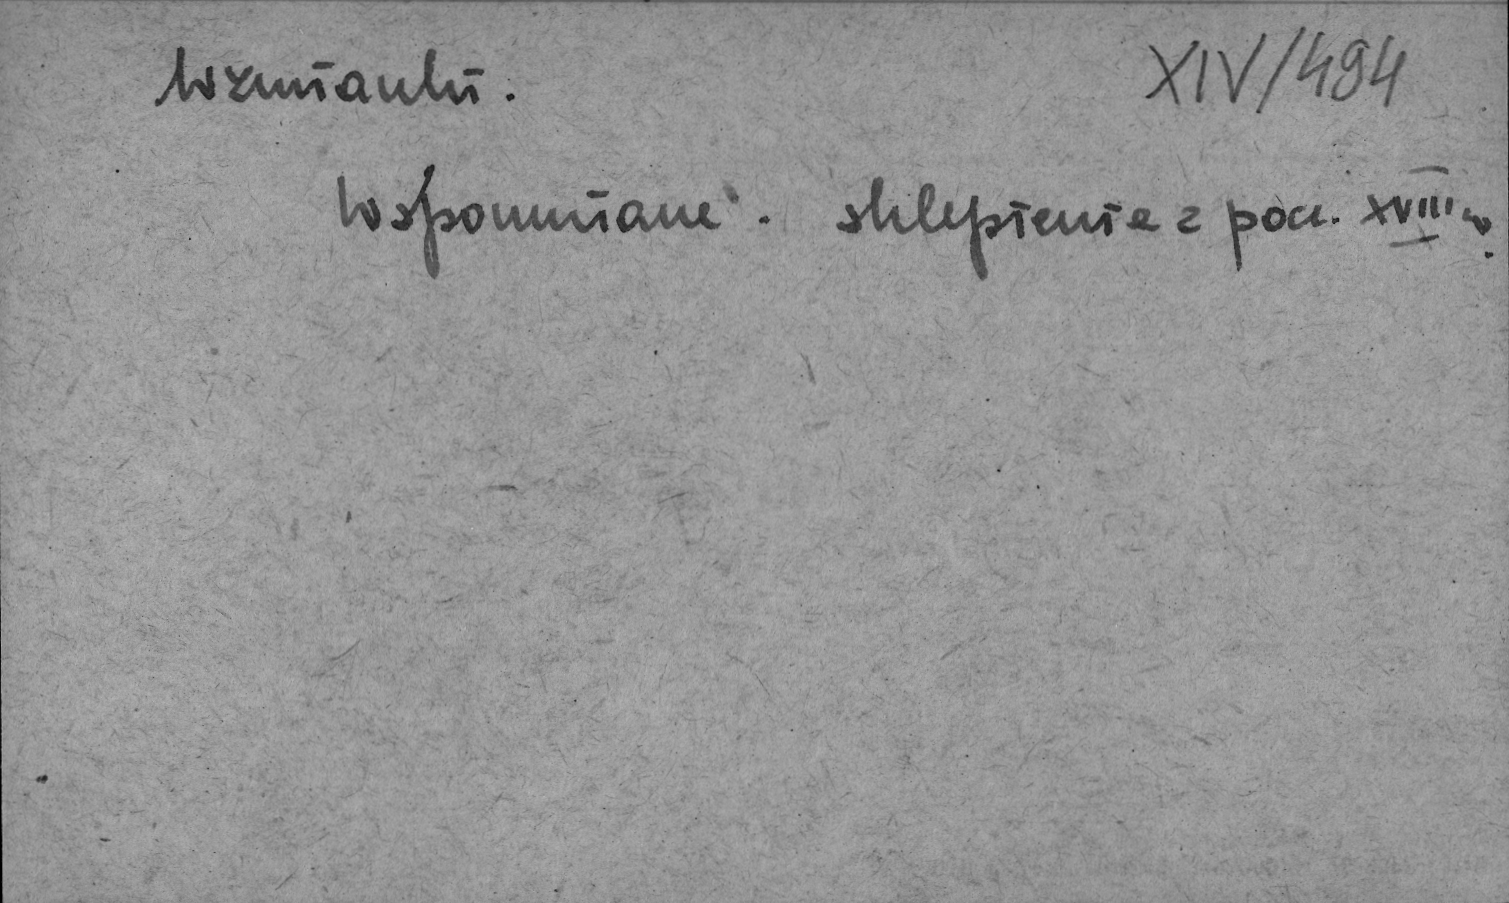 Wzmianki. XIV/494
Wspomniane. sklepienie z pocz. XVIII w.